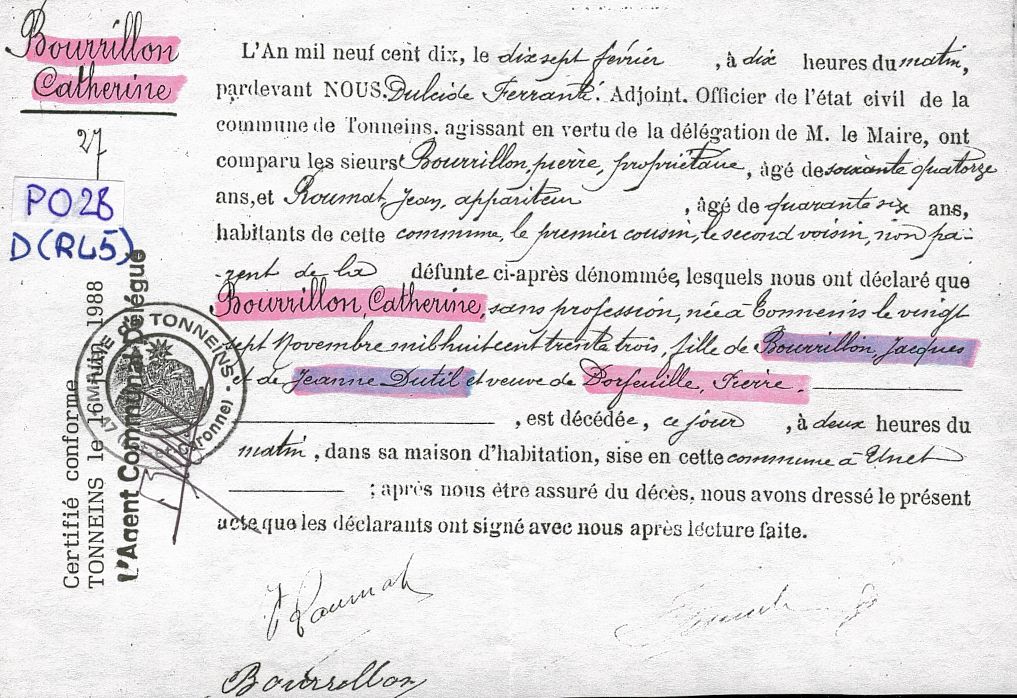 Bourrillon
Catherine
27
PO2B
D(R45)
L'An mil neuf cent dix, le dix sept février, à dix heures du matin,
pardevant NOUS. Dulcide Ferrant. Adjoint. Officier de l'état civil de la
commune de Tonneins. agissant en vertu de la délégation de M. le Maire, ont
comparu les sieurs Bourrillon, pierre, propriétaire, âgé de soixante quatorze
ans, et Roumat, Jean, appariteur, âgé de quarante six ans,
habitants de cette commune, le premier cousin, le second voisin, non pa-
-rent de la défunte ci-après dénommée, lesquels nous ont déclaré que
Bourrillon, Catherine, sans profession, née à Tonneins le vingt
sept Novembre mil huit cent trente trois, fille de Bourrillon, Jacques
et de Jeanne Dutil et veuve de Dorfeuille, Pierre.
, est décédée, ce jour, à deux heures du
matin, dans sa maison d'habitation, sise en cette commune à Unet
; après nous être assuré du décès, nous avons dressé le présent
acte que les déclarants ont signé avec nous après lecture faite.
Roumat
Bourrillon
Certifié conforme
TONNEINS le 16 MAI 1988
L'Agent Communal Délégué
MAIRIE de TONNEINS
47 (Lot et Garonne)